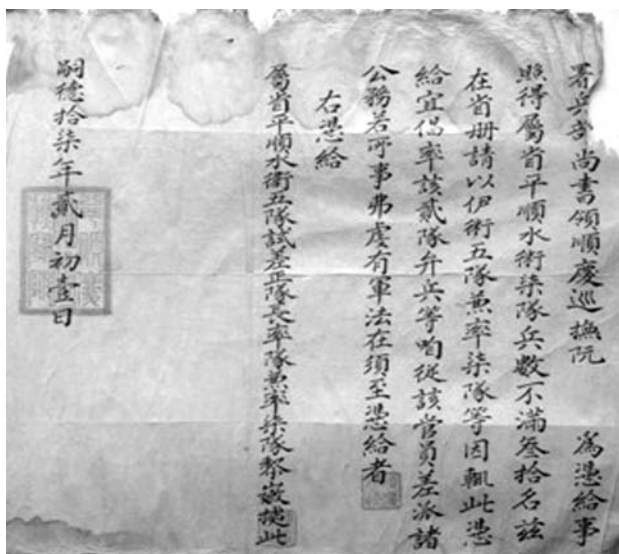 署兵部尚書領順慶巡撫阮 為憑給事
照得屬省平順水衛柒隊兵數不滿叁拾名茲
在省册請以伊衛五隊兼率柒隊等因輒此憑
給宜偈率該貳隊弁兵等咱從該管員差派諸
公務若所事弗虔有軍法在須至憑給者
右憑給
屬省平順水衛五隊試差正隊長率隊兼率柒隊黎嶽㨗此
嗣德拾柒年貳月初壹日